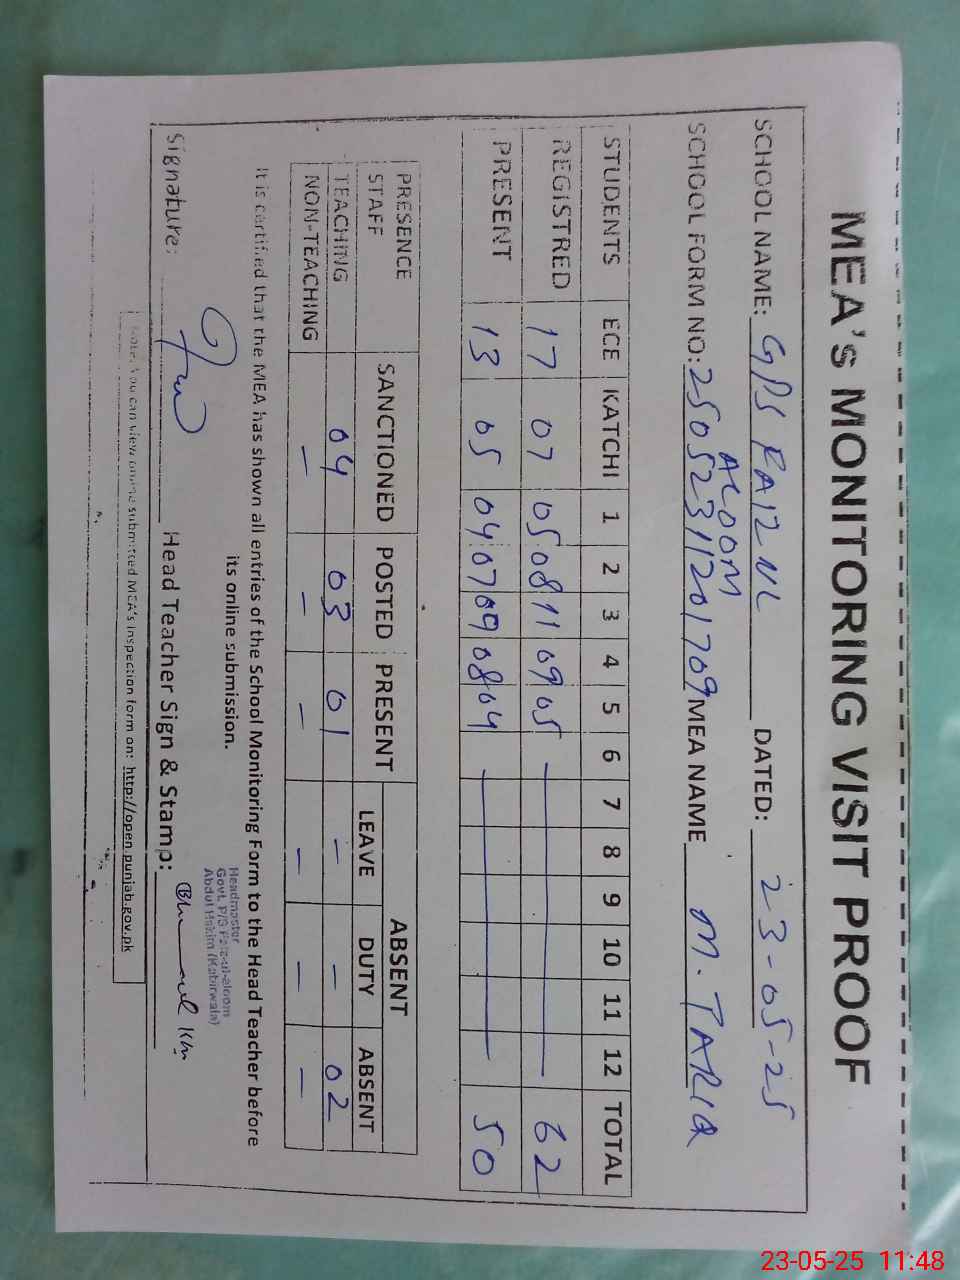 MEA's MONITORING VISIT PROOF
SCHOOL NAME: GPS FAIZ UL DATED: 23-05-25
ALOOM
SCHOOL FORM NO: 25052311201709 MEA NAME M. TARIQ
STUDENTS ECE KATCHI 1 2 3 4 5 6 7 8 9 10 11 12 TOTAL
REGISTRED 17 07 05 08 11 09 05 62
PRESENT 13 05 04 07 09 08 04 50
PRESENCE STAFF SANCTIONED POSTED PRESENT ABSENT
LEAVE DUTY ABSENT
TEACHING 04 03 01 - - 02
NON-TEACHING - - - - - -
It is certified that the MEA has shown all entries of the School Monitoring Form to the Head Teacher before
its online submission.
Headmaster
Govt. P/S Faiz-ul-aloom
Abdul Hakim (Kabirwala)
Signature: Head Teacher Sign & Stamp:
Note: You can view online submitted MEA's inspection form on: http://open.punjab.gov.pk
23-05-25 11:48